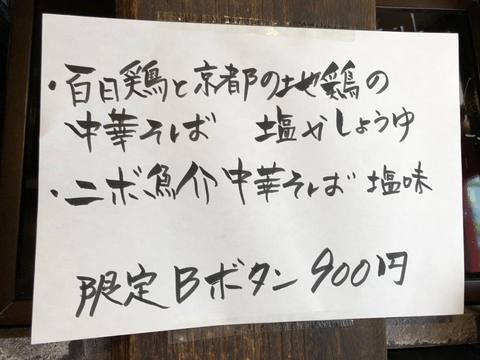 ・百日鶏と京都の地鶏の
中華そば 塩かしょうゆ
・ニボ魚介中華そば 塩味
限定Bボタン 900円